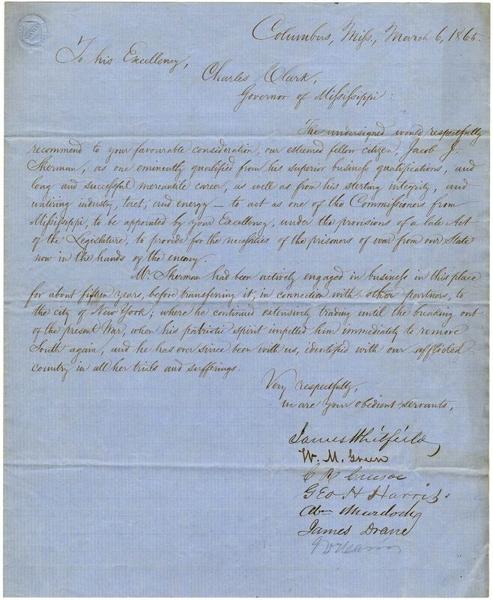 Columbus, Miss., March 6, 1865.
To his Excellency,
Charles Clark,
Governor of Mississippi.
The undersigned would respectfully
recommend to your favourable consideration, our esteemed fellow citizen, Jacob J.
Sherman, as one eminently qualified from his superior business qualifications, and
long and successful mercantile career, as well as from his sterling integrity, and
untiring industry, tact, and energy — to act as one of the Commissioners from
Mississippi, to be appointed by your Excellency, under the provisions of a late Act
of the Legislature, to provide for the necessities of the prisoners of war from our State
now in the hands of the enemy.
Mr. Sherman had been actively engaged in business in this place
for about fifteen years, before transferring it, in connection with other partners, to
the city of New York; where he continued extensively trading until the breaking out
of the present War, when his patriotic spirit impelled him immediately to remove
South again, and he has ever since been with us, identified with our afflicted
country in all her trials and sufferings.
Very respectfully,
we are your obedient servants,
James Whitfield
W. M. Green
Geo H Harris
Murdock
James Drane